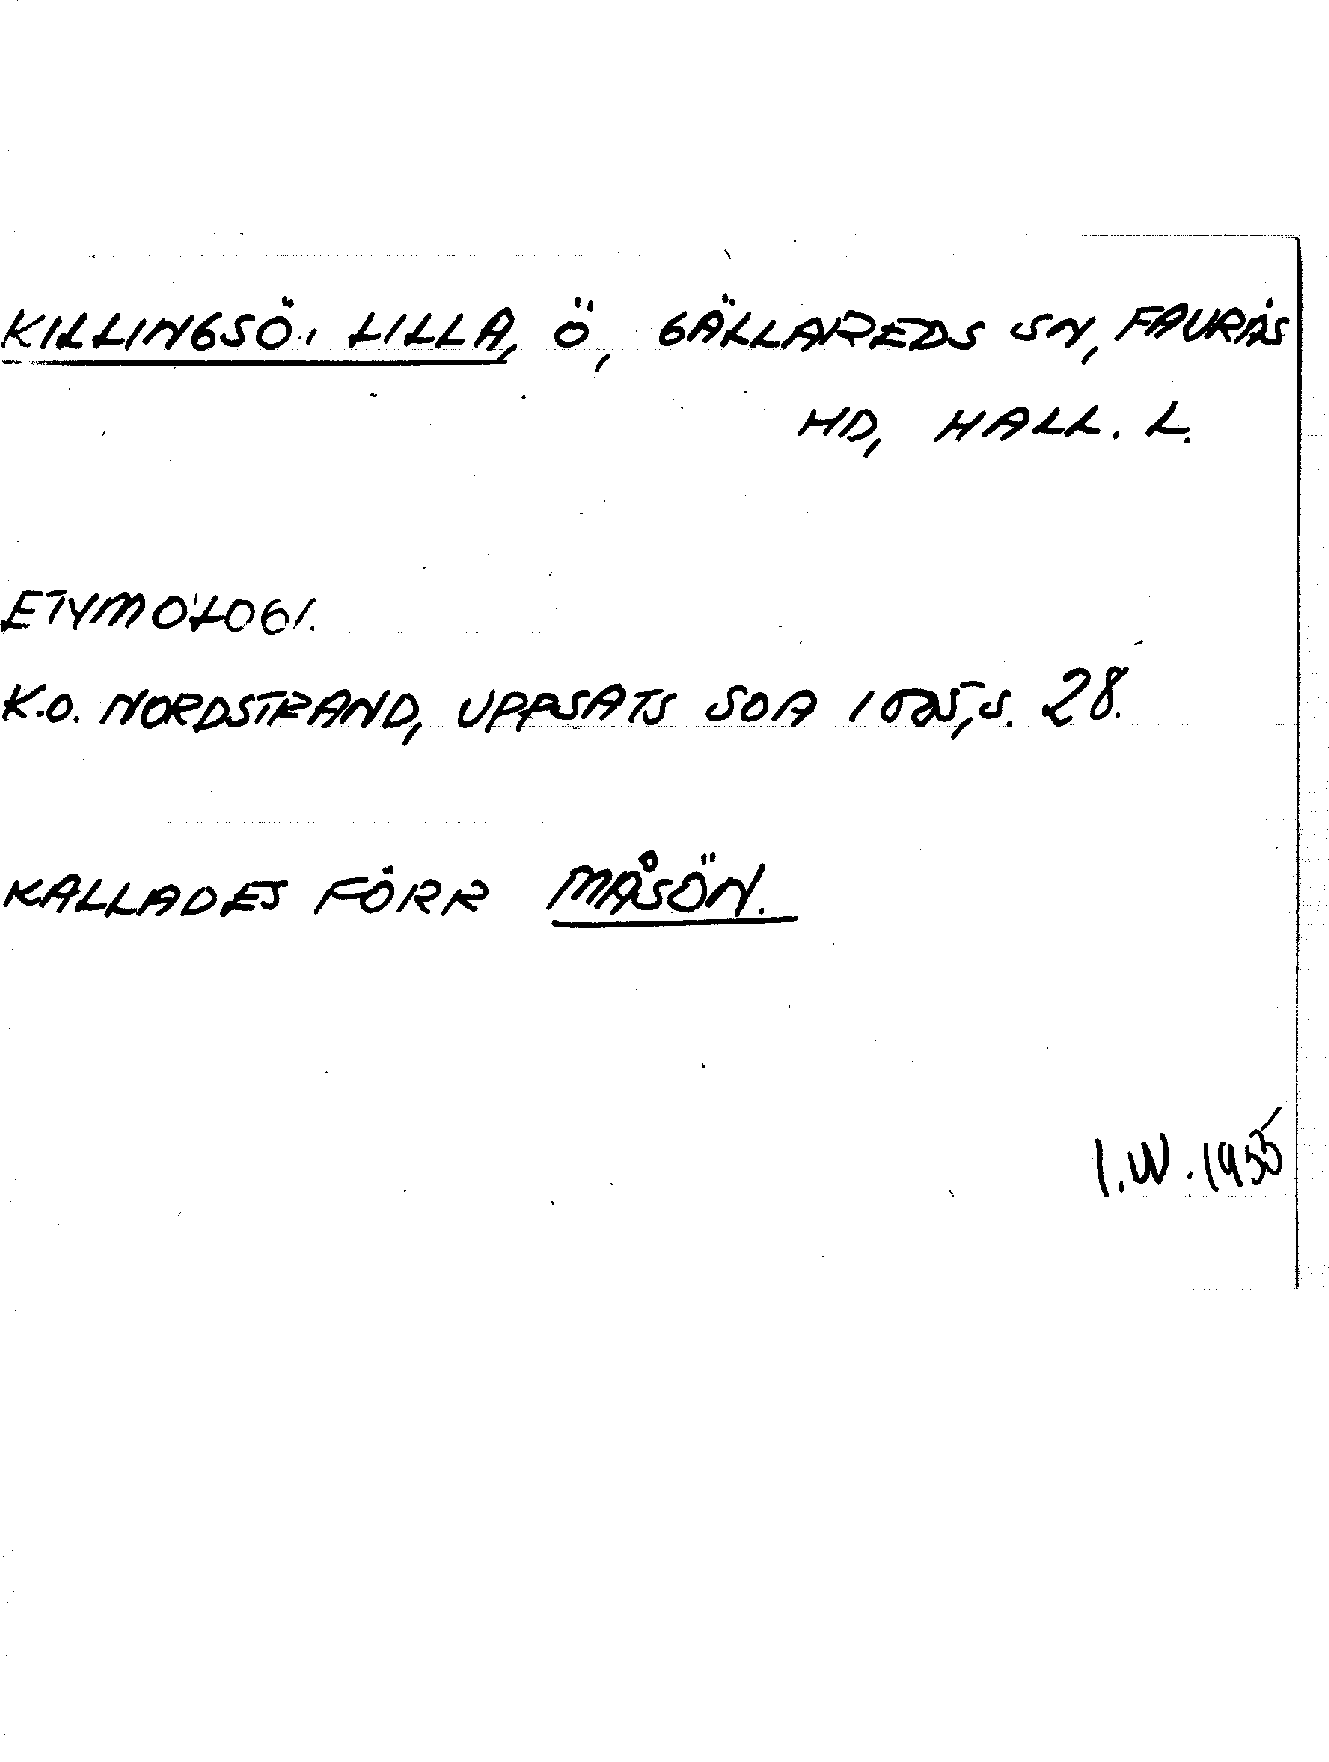 KILLINGSÖ, LILLA, Ö, GÄLLAREDS SN, FAURÅS
HD, HALL. L.
ETYMOLOGI.
K.O. NORDSTRAND, UPPSATS SOA 1625, S. 28.
KALLADES FÖRR MÅSÖN.
I.W. 1955